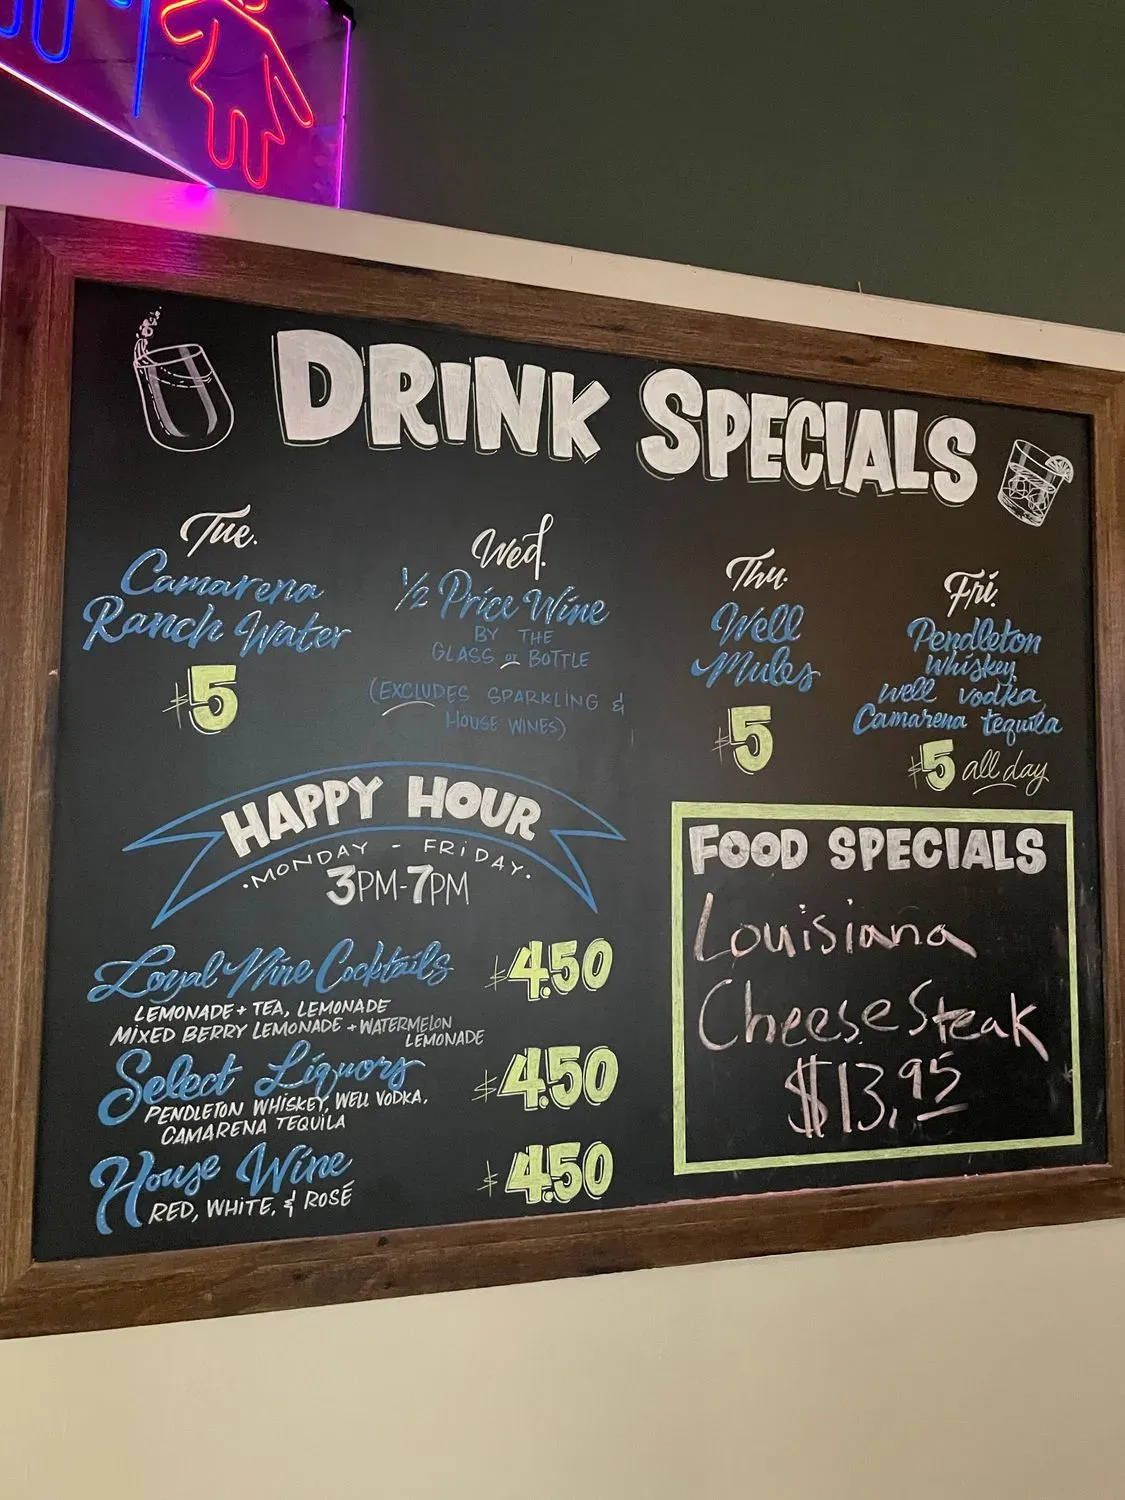 DRINK SPECIALS
Tue.
Camarena
Ranch Water
$5
Wed.
1/2 Price Wine
BY THE
GLASS or BOTTLE
(EXCLUDES SPARKLING &
HOUSE WINES)
Thu.
Well
Mules
$5
Fri.
Pendleton
Whiskey,
well vodka,
Camarena tequila
$5 all day
HAPPY HOUR
·MONDAY - FRIDAY·
3PM-7PM
Loyal Nine Cocktails $4.50
LEMONADE + TEA, LEMONADE
MIXED BERRY LEMONADE + WATERMELON
LEMONADE
Select Liquors $4.50
PENDLETON WHISKEY, WELL VODKA,
CAMARENA TEQUILA
House Wine $4.50
RED, WHITE, & ROSÉ
FOOD SPECIALS
Louisiana
Cheese Steak
$13.95